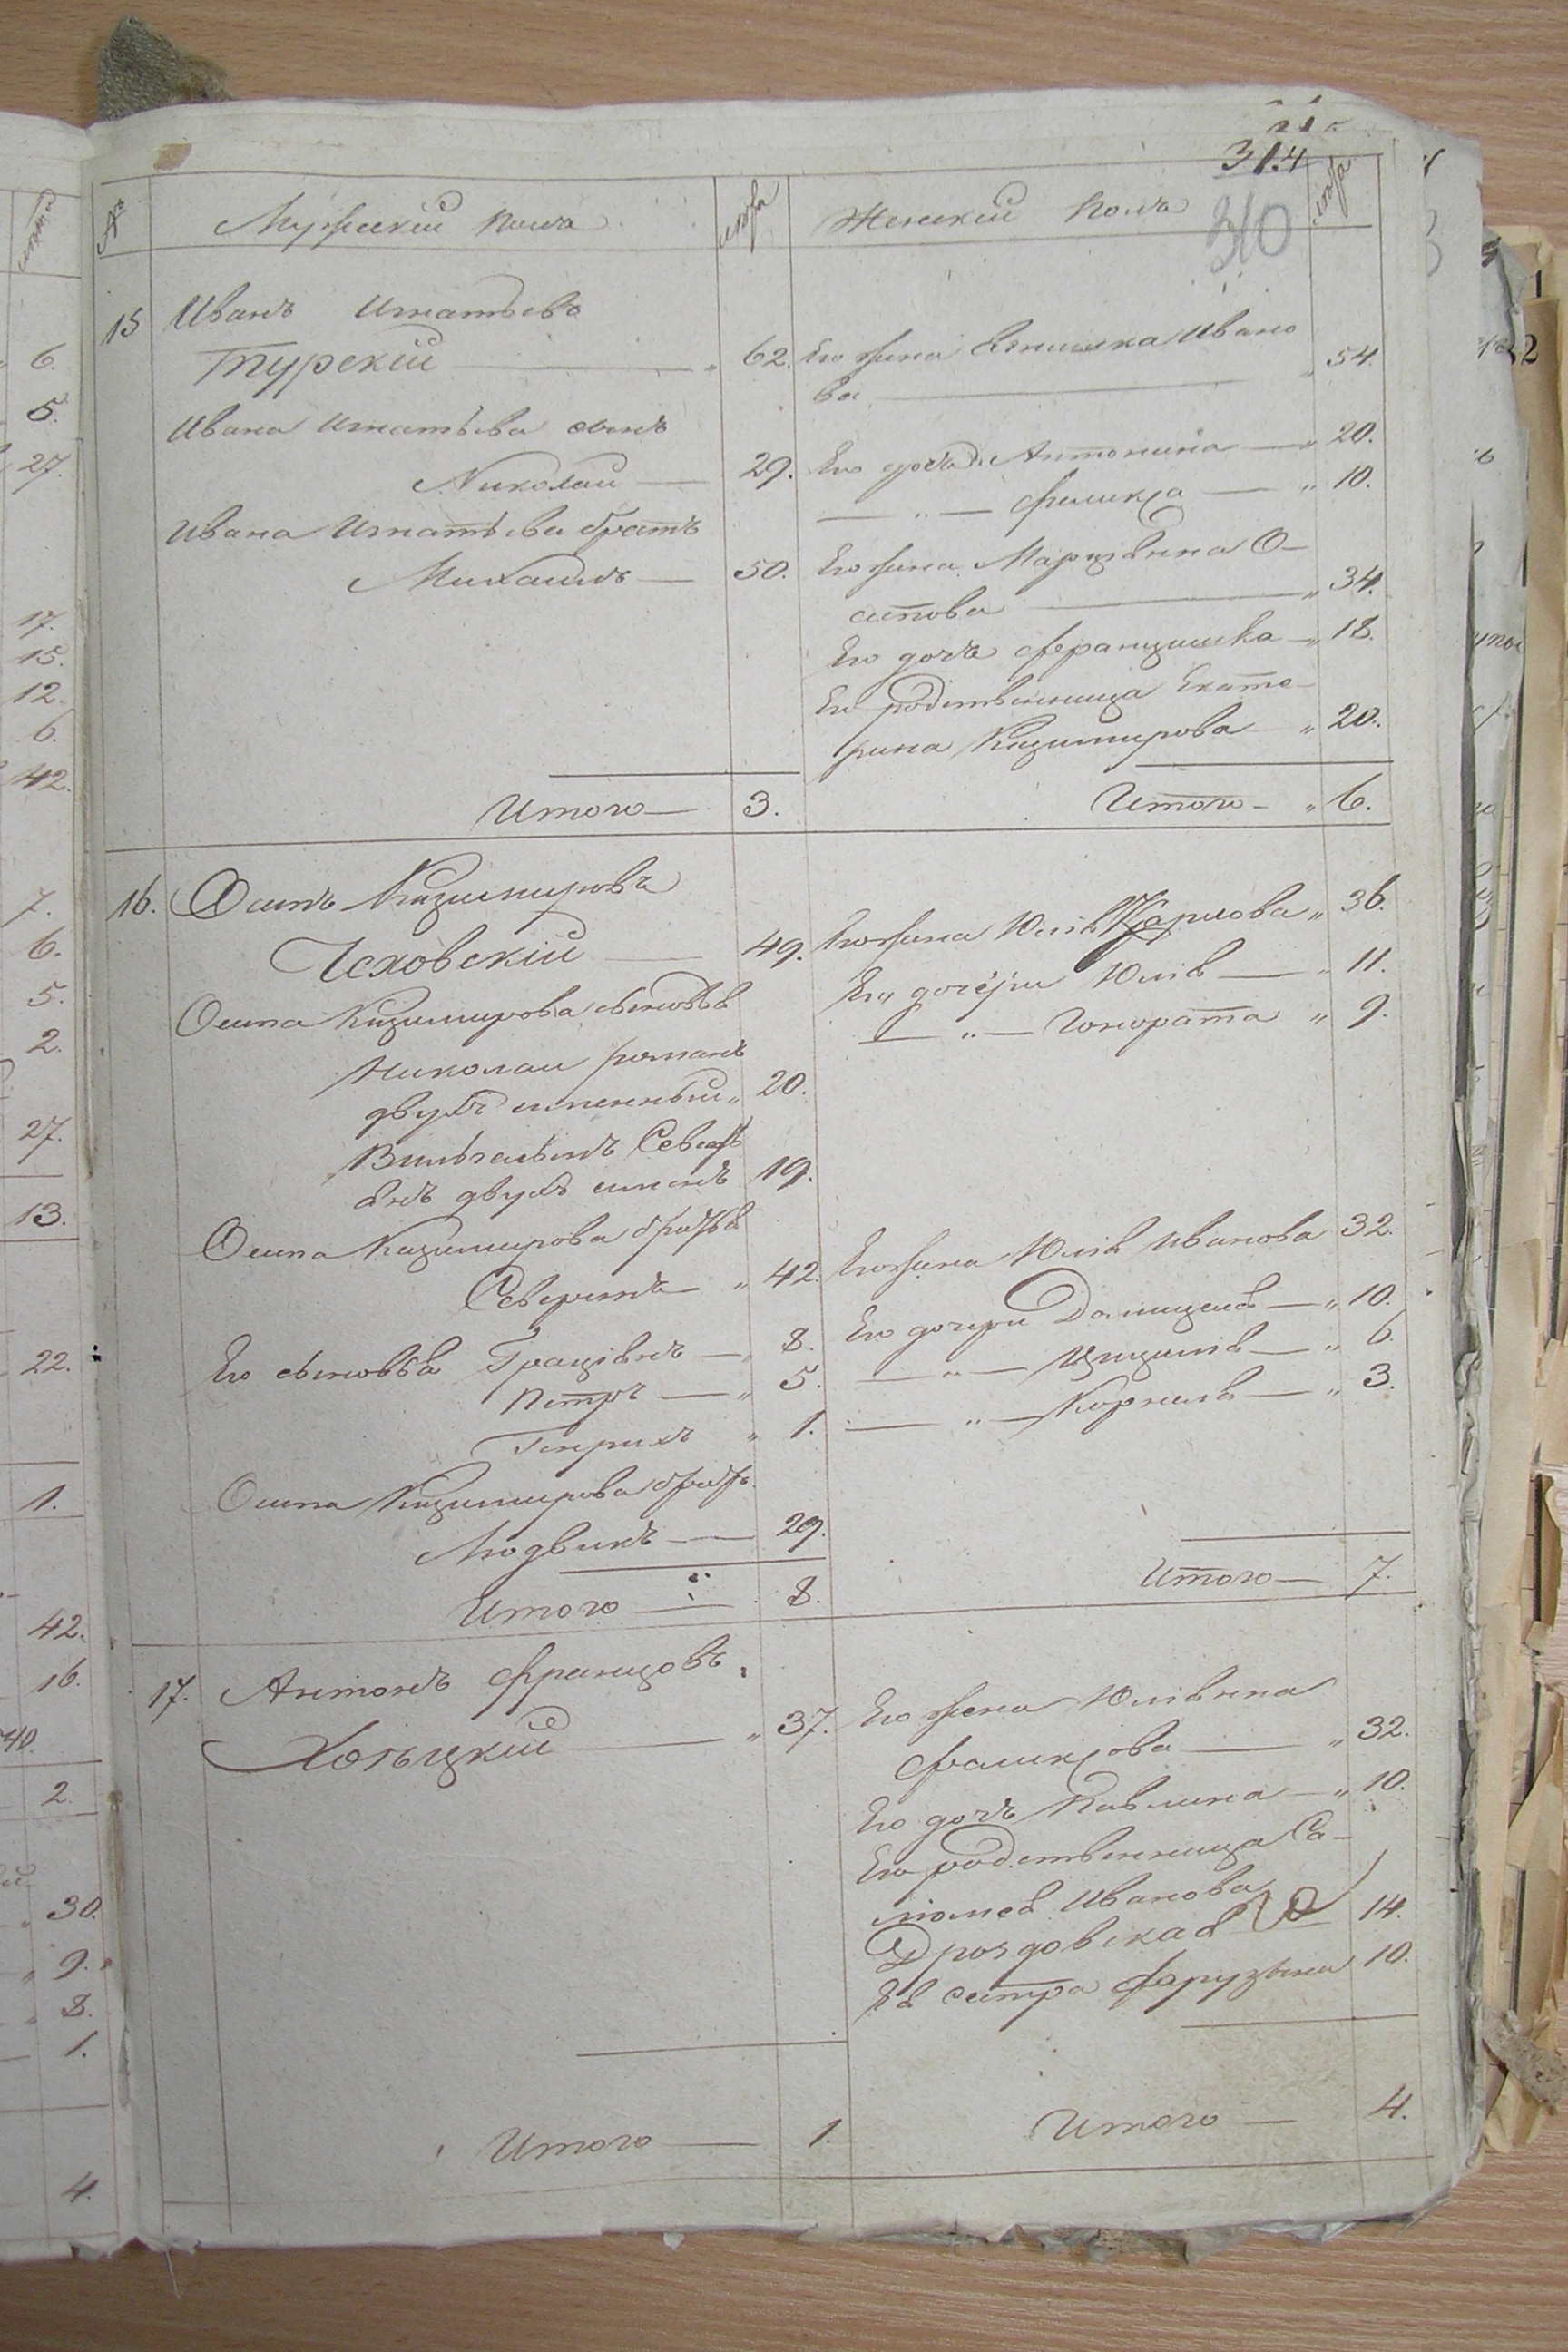 314
310
№ Мужескій полъ лѣта Женскій полъ лѣта
15 Иванъ Игнатьевъ
Турскій 62. Его жена Ивано
ва 54.
Ивана Игнатьева сынъ
Николай 29. Его дочь Антонина 20.
— „ — Феликса „ 10.
Ивана Игнатьева братъ
Михаилъ 50. Его жена Марціянна О-
сипова „ 34.
Его дочь Францишка „ 18.
Его родственница Екате-
рина Казимирова „ 20.
Итого 3. Итого „ 6.
16. Осипъ Казимировъ
Чеховскій 49. Его жена Юлія Карлова „ 36.
Его дочери Юлія „ 11.
— „ — Гонората „ 9.
Осипа Казимирова сыновья
Николай Романъ
двухъ именный „ 20.
Вильгельмъ Севасть
янъ двухъ именъ 19.
Осипа Казимирова братья
Северинъ „ 42. Его жена Юлія Иванова 32.
Его сыновья Граціянъ „ 8. Его дочери Домицеля „ 10.
Петръ „ 5. — „ — Цецилія „ 6.
Генрихъ „ 1. — „ — Корнеля „ 3.
Осипа Казимирова братъ
Людвикъ 29.
Итого 8. Итого 7.
17. Антонъ Францовъ
Хольцкій „ 37. Его жена Юліянна
Феликсова „ 32.
Его дочь Павлина „ 10.
Его родственница Са-
ломея Иванова
Дроздовская 14.
Ея сестра 10.
Итого 1. Итого 4.
6.
5.
27.
17.
15.
12.
6.
42.
7.
6.
5.
2.
27.
13.
22.
1.
42.
16.
40.
2.
30.
9.
8.
1.
4.